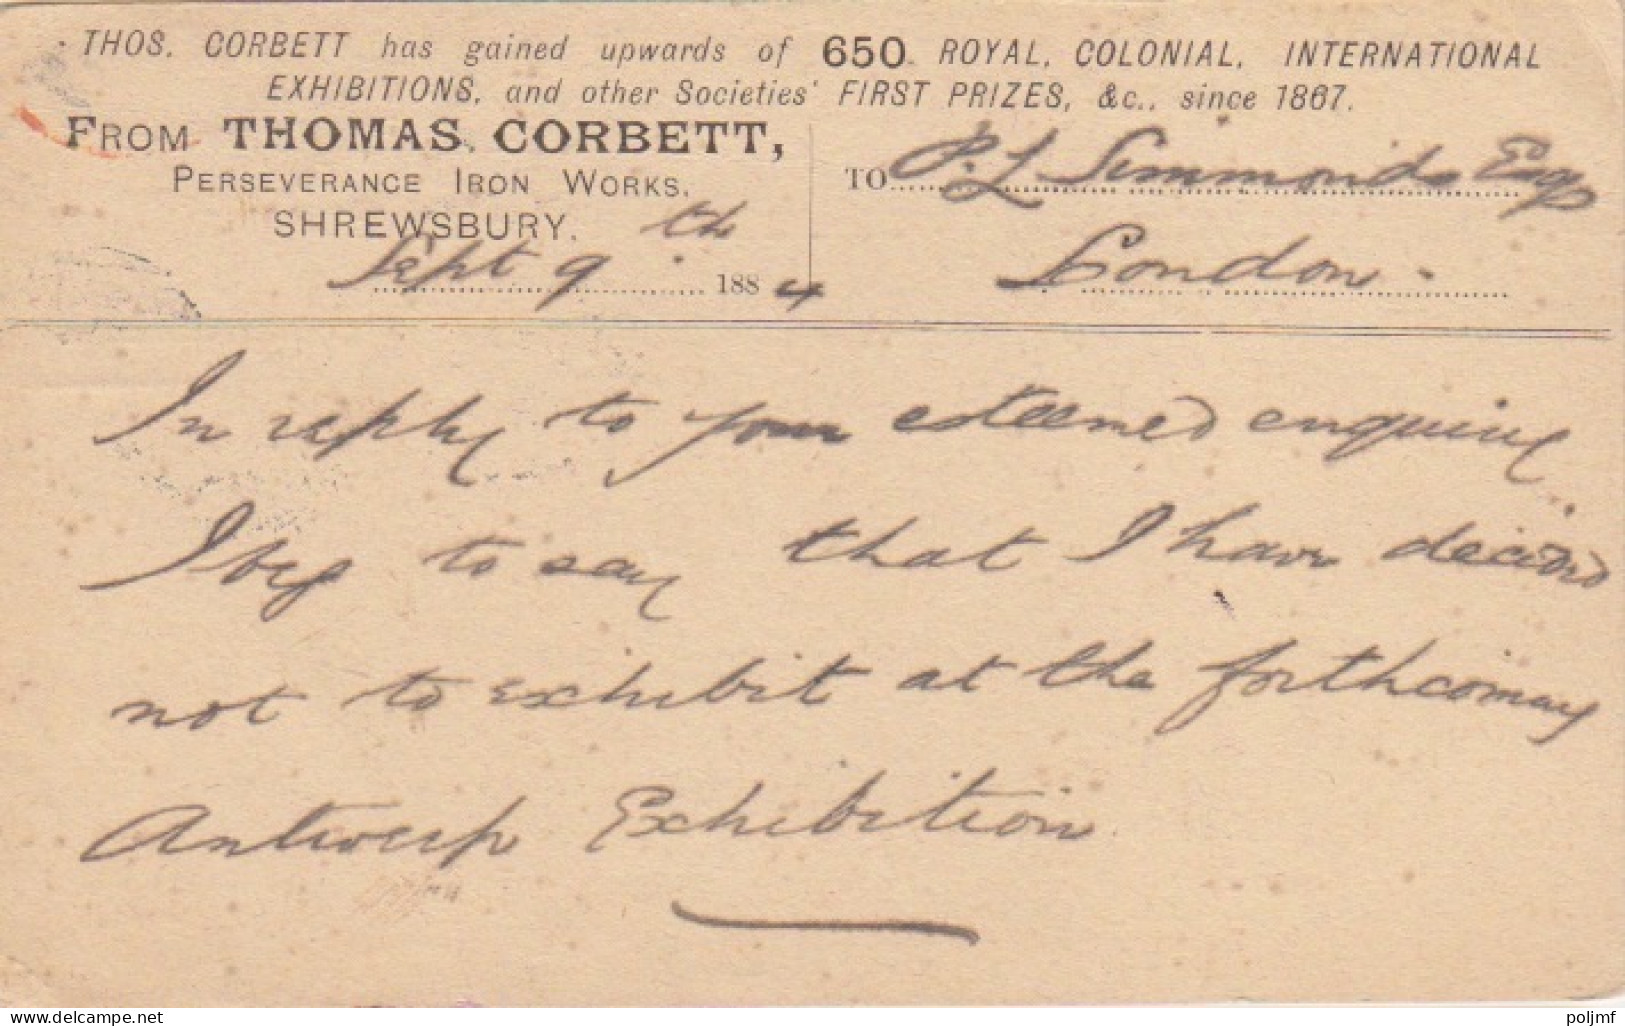 THOS. CORBETT has gained upwards of 650 ROYAL, COLONIAL, INTERNATIONAL
EXHIBITIONS, and other Societies' FIRST PRIZES, &c., since 1867.
FROM THOMAS CORBETT,
PERSEVERANCE IRON WORKS,
SHREWSBURY.
Sept 9th 1884
TO P. L Simmonds Esq
London.
In reply to your esteemed enquiry
I beg to say that I have decided
not to exhibit at the forthcoming
Antwerp Exhibition
delcampe.net
poljmf